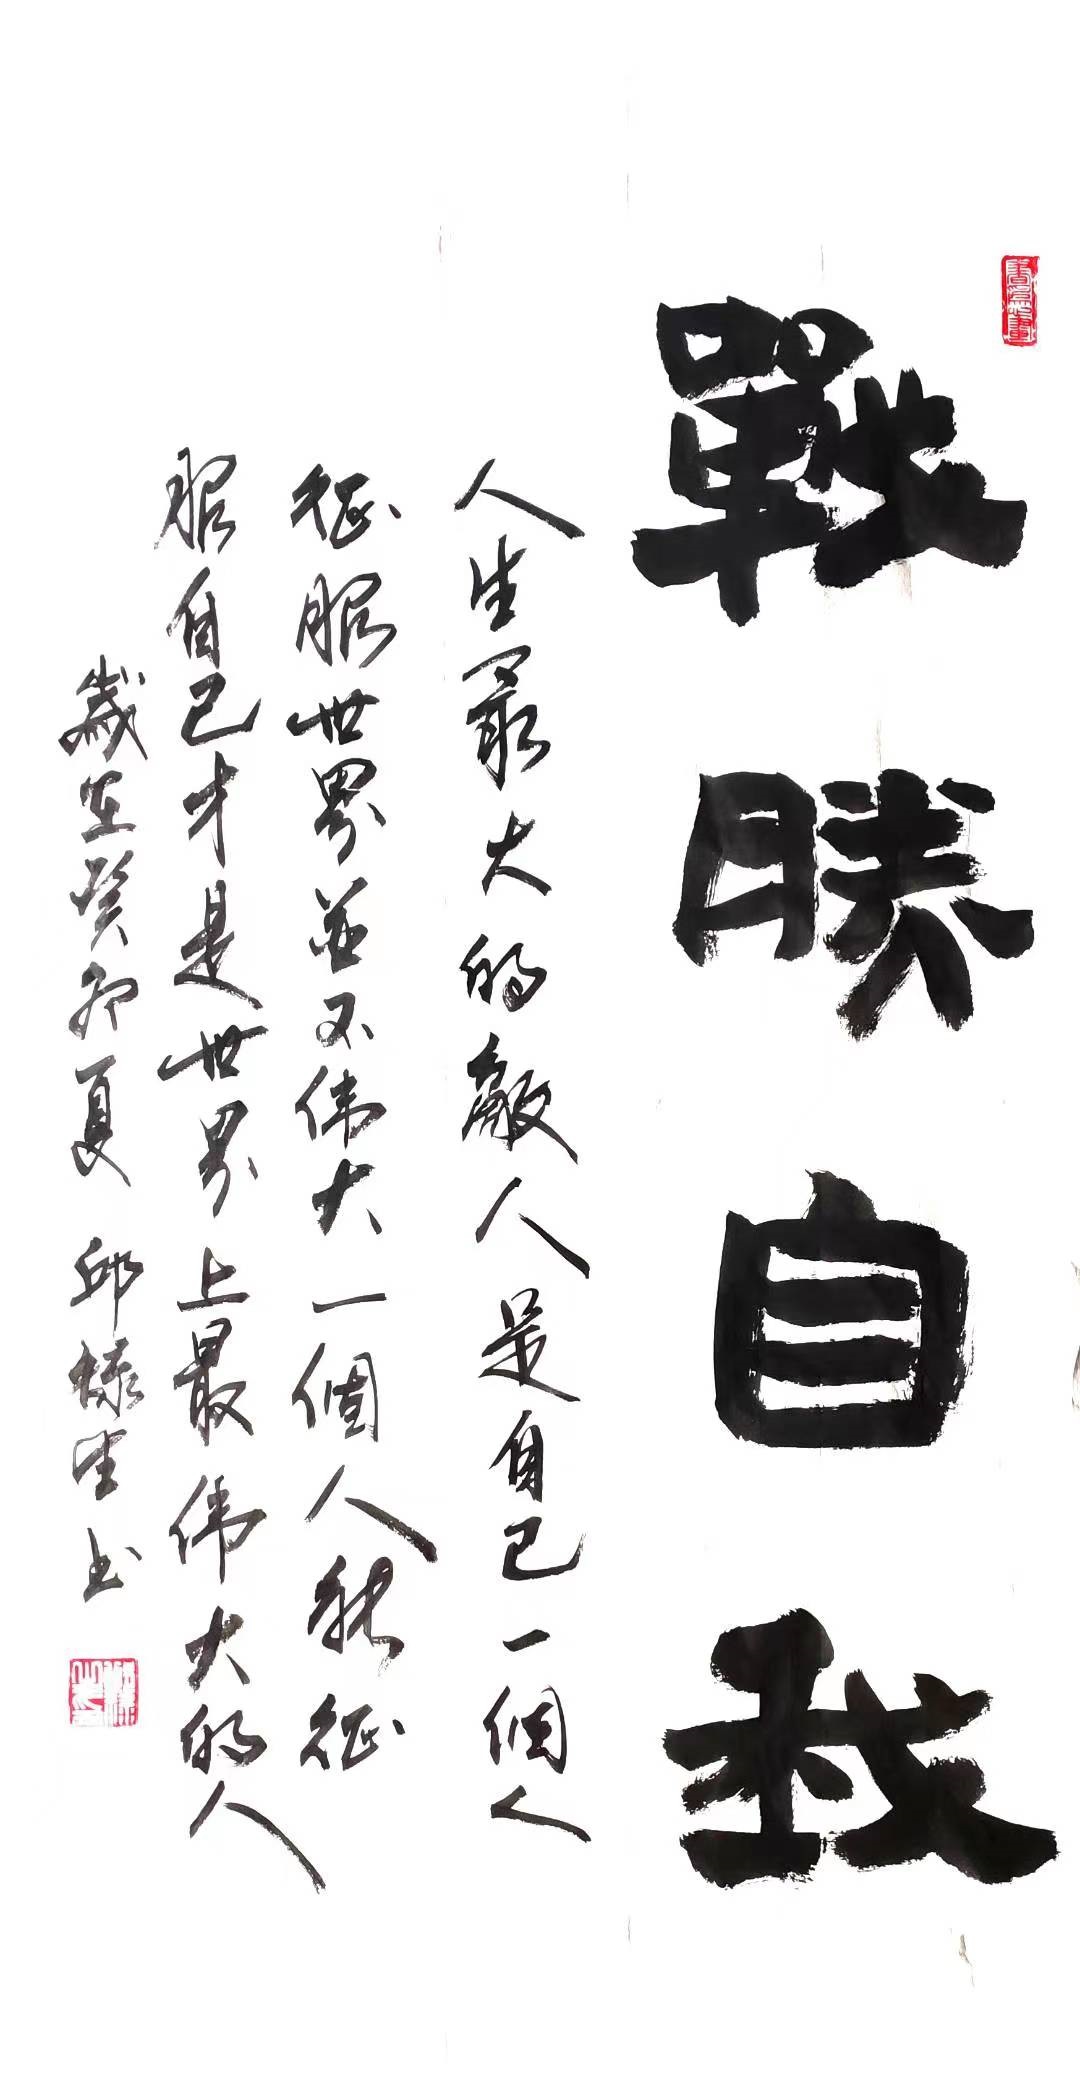 戰勝自我
人生最大的敵人是自己一個人
征服世界並不伟大一個人能征
服自己才是世界上最伟大的人
歲在癸卯夏 邱禄生书